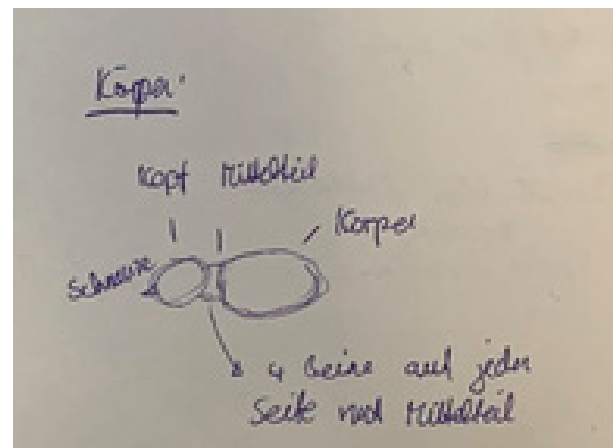 Körper
Kopf Mittelteil
Körper
Schnauze
4 Beine auf jeder
Seite Mittelteil